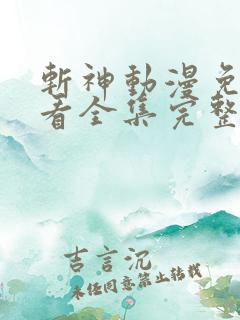 斬神動漫免
看全集完整
吉言沉
未经同意禁止转载